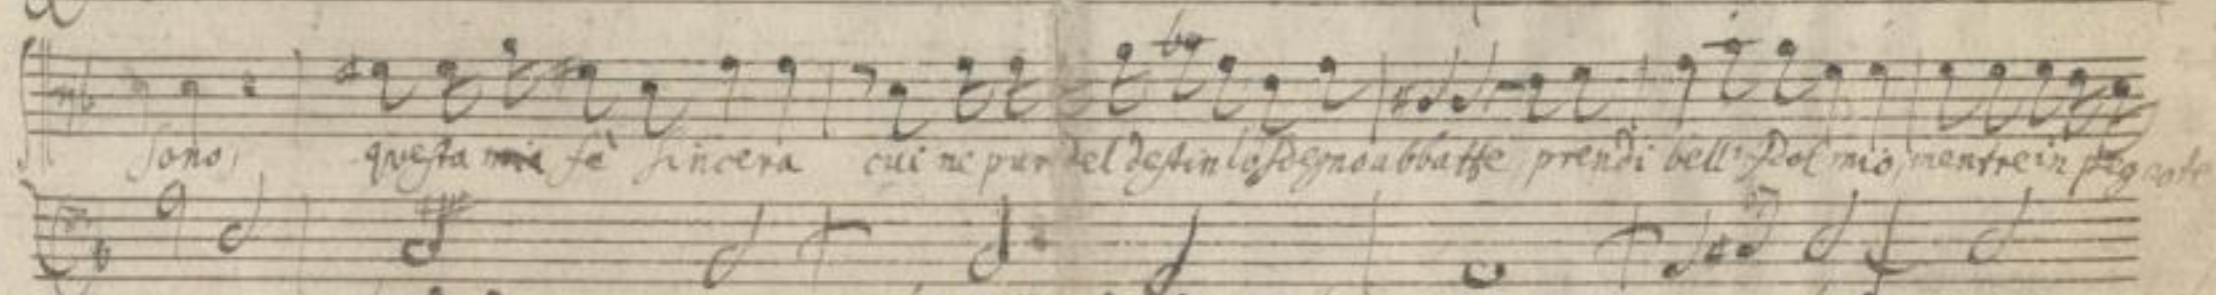 sono, questa mia fè sincera cui ne pur del destin lo sdegno abbatte, prendi bell'Idol mio, mentre in pegno